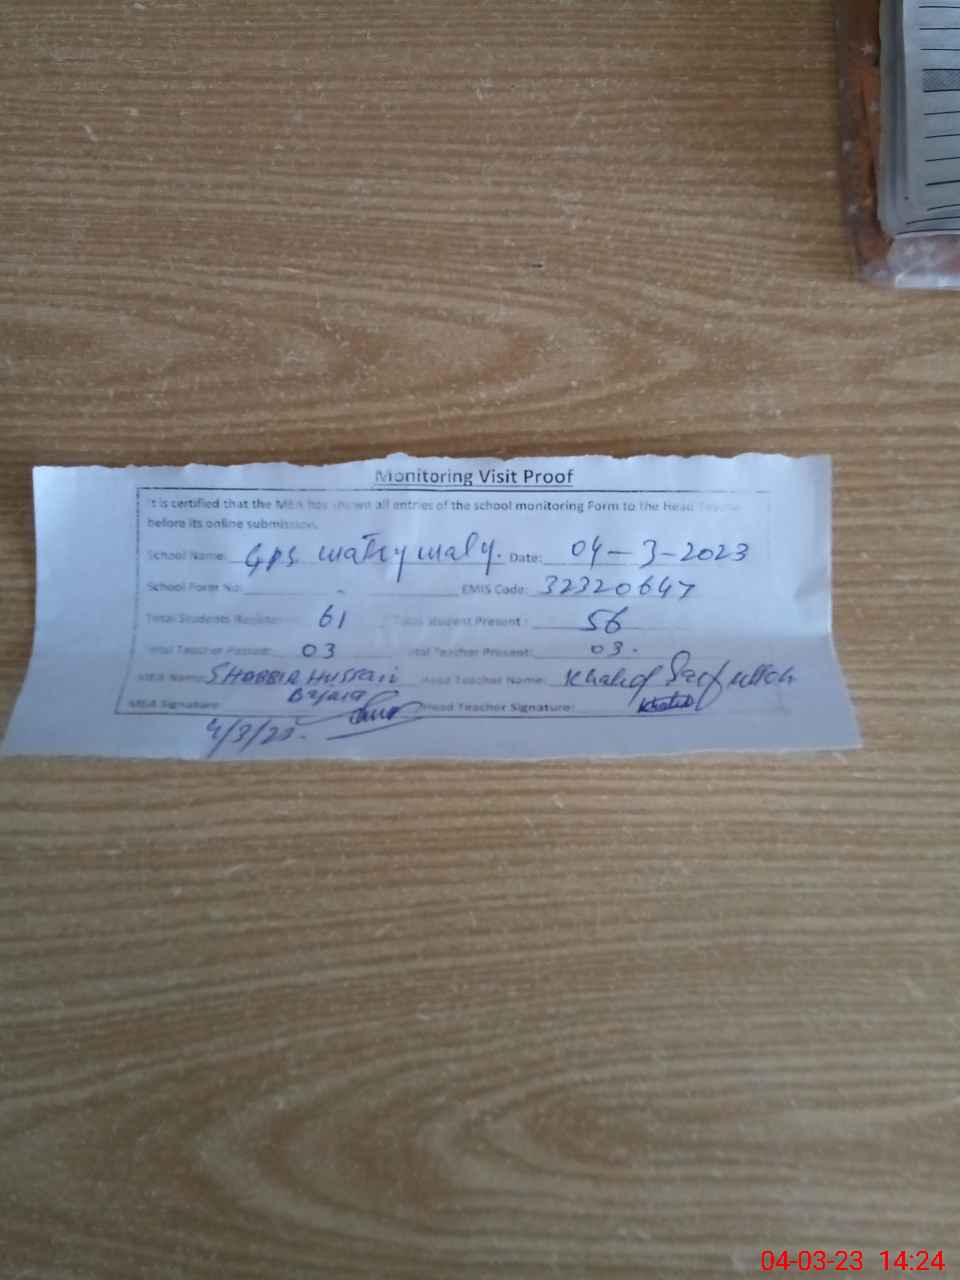 Monitoring Visit Proof
It is certified that the MEA has shown all entries of the school monitoring Form to the Head Teacher
before its online submission.
School Name: GPS Watry waly. Date: 04-3-2023
School Form No: EMIS Code: 32320647
Total Students Register: 61 Total student Present: 56
Total Teacher Posted: 03 Total Teacher Present: 03.
MEA Name: SHABBIR HUSSain Head Teacher Name: Khalid Saifullah
MEA Signature: Head Teacher Signature: Khalid
4/3/23.
04-03-23 14:24